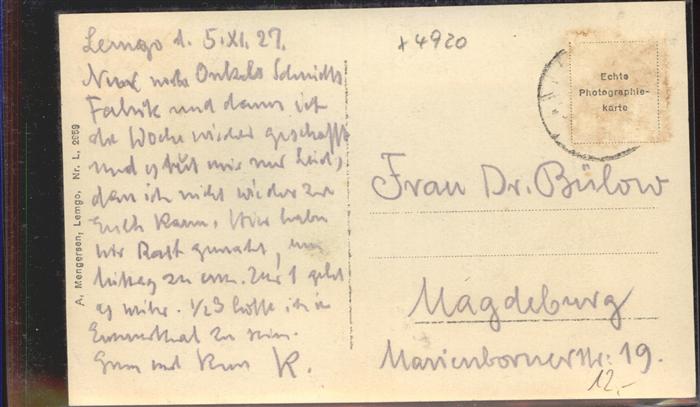 Lemgo 1. 5.XI.27.
Nur noch Onkels Schmidts
Fabrik und dann ist
die Woche wieder geschafft
und es tut mir nur Leid,
dass ich nicht wieder zu
Euch kann. Hier haben
wir Rast gemacht, um
Mittag zu ess. Zur 1 geht
es weiter. 1/2 3 hoffe ich in
Emmerthal zu sein.
Gruss und Kuss K.
x 4920
Echte
Photographie-
karte
Frau Dr. Bülow
Magdeburg
Marienbornerstr. 19.
12,-
A. Mengersen, Lemgo, Nr. L. 2959